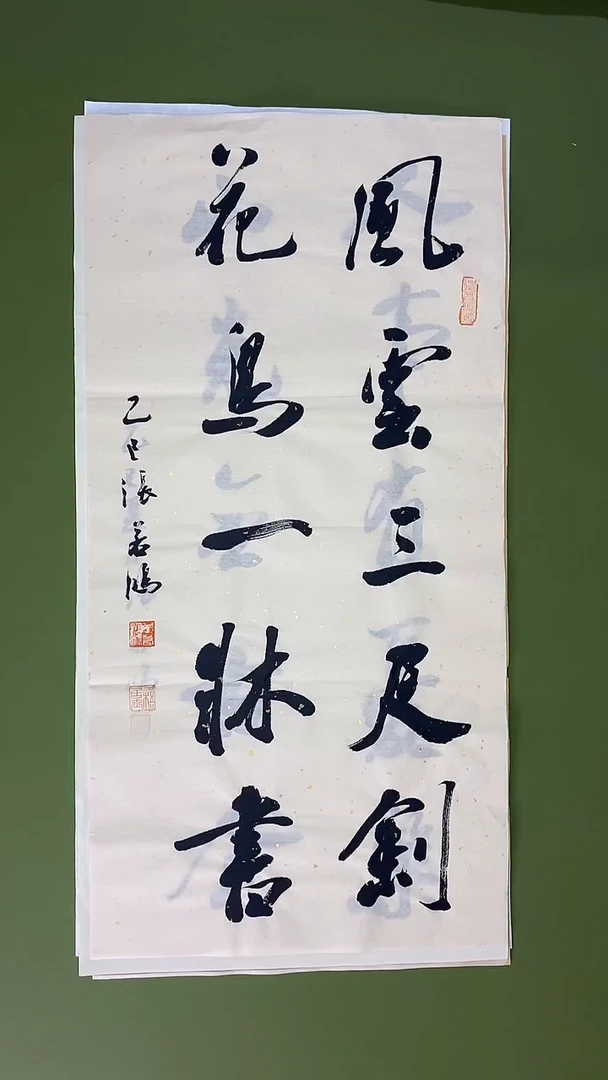 風雲三尺劍
花鳥一牀書
乙巳張若鴻